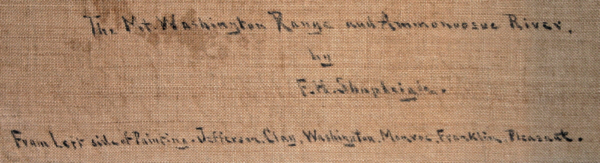 The Mt. Washington Range and Ammonoosuc River.
by
F. H. Shapleigh.
From Left side of Painting. Jefferson. Clay. Washington. Monroe. Franklin. Pleasant.